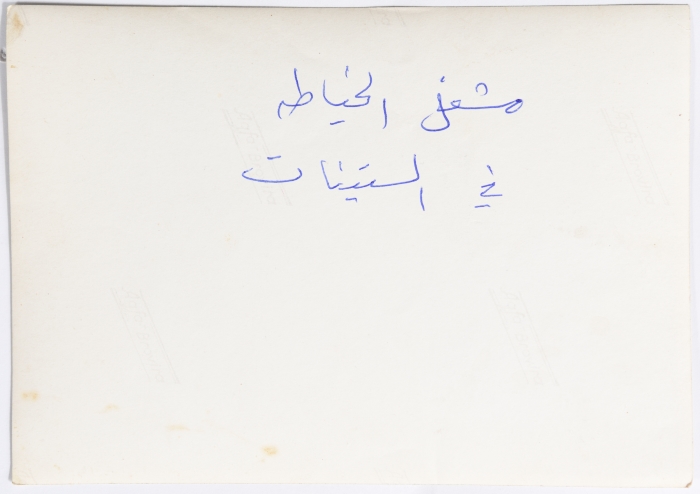 مشغل الخياطه
في الستينات